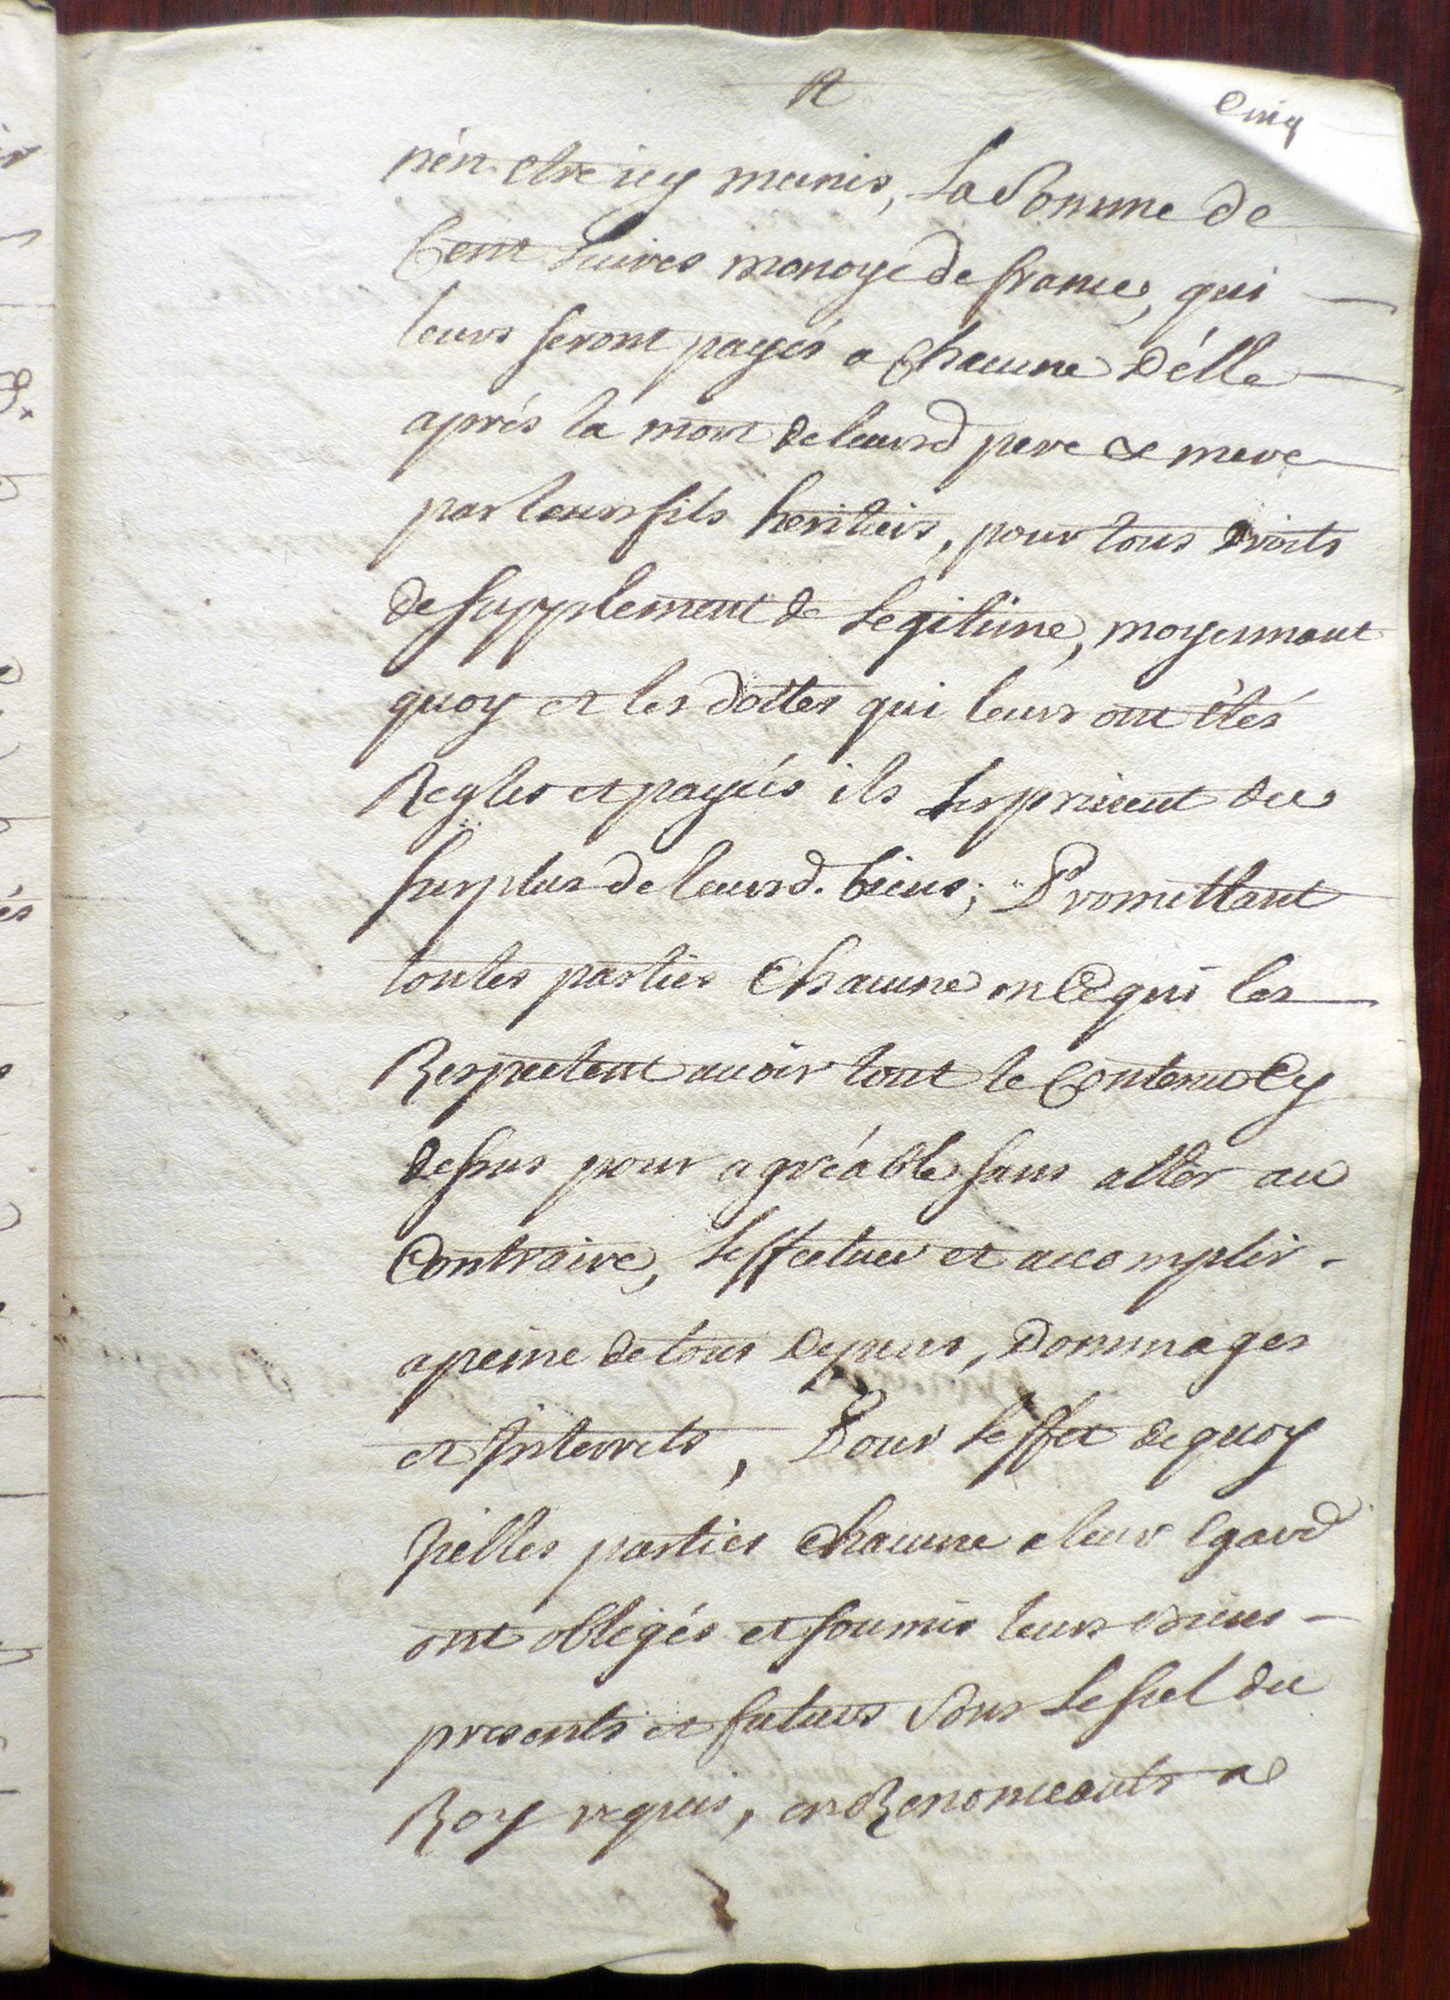 Cinq
n'én etre icy munis, La Somme de
Cent Livres monoye de france, qui
leurs seront payés a Chacune D'élle
aprés la mort de leursd pere & mere
par leurs fils heritiers, pour tous Droits
de supplément de Legitime, moyennant
quoy et les dottes qui leurs ont étés
Reglés et payés ils Les privent du
surplus de leursd. biens; Promettant
toutes parties Chacune en Ce qui les
Respectent avoir tout le Contenu Cy
dessus pour agréable sans aller au
Contraire, L'effectuer et accomplir
a peine de tous Depens, Dommages
et Interrets, Pour L'effét de quoy
Icelles parties Chacune a leur Egard
ont obligés et soumis leurs Biens
presents et futurs Sous Le scel du
Roy requis, en Renonceants a